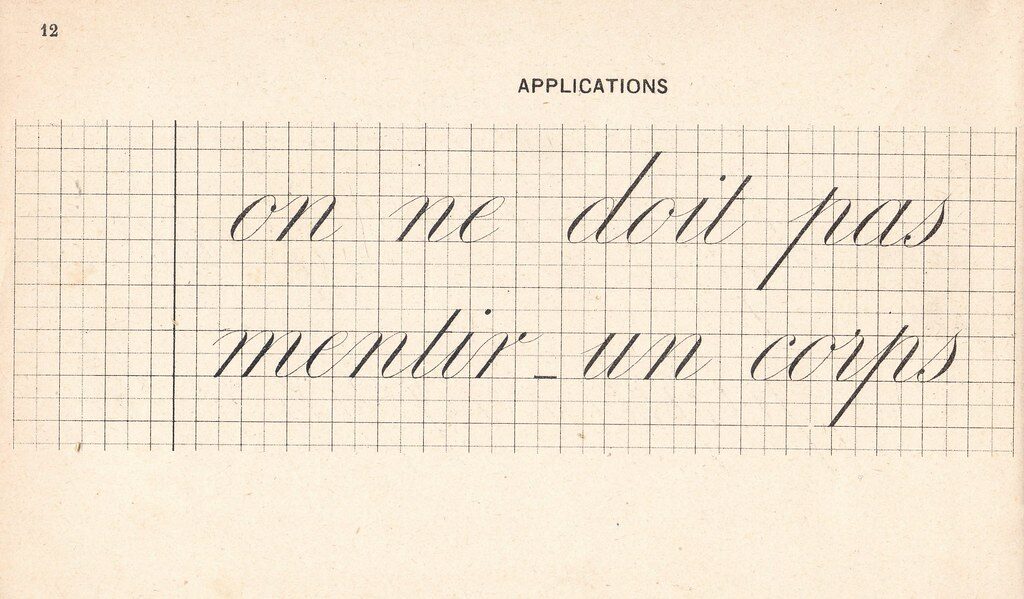 12
APPLICATIONS
on ne doit pas
mentir _ un corps